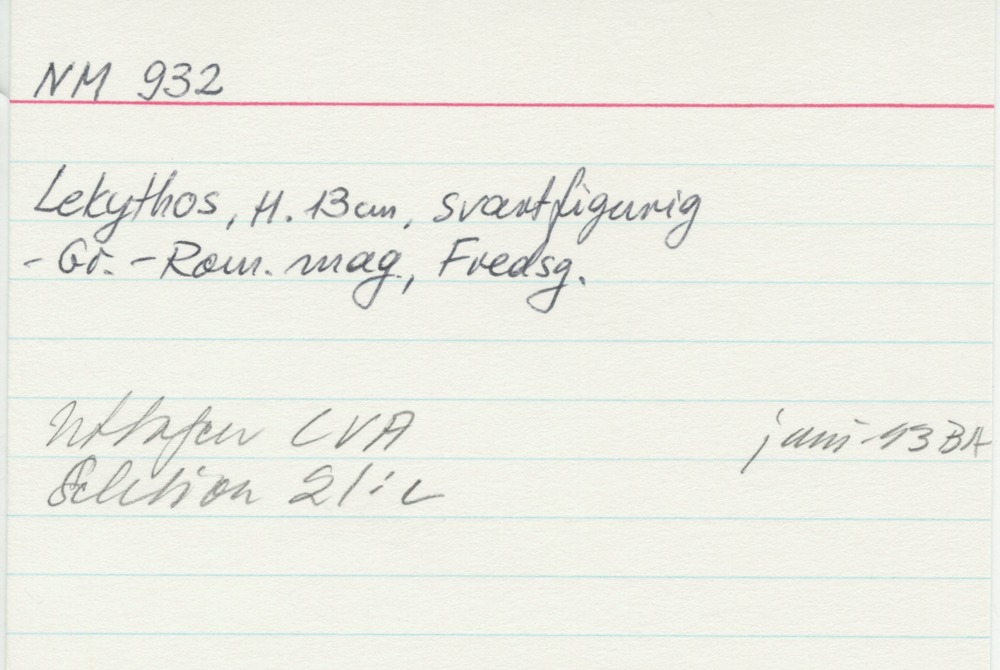 NM 932
Lekythos, H. 13 cm, svartfigurig
- Gr. - Rom. mag, Fredsg.
Uttagen CVA juni -93 BA
Sektion 21: